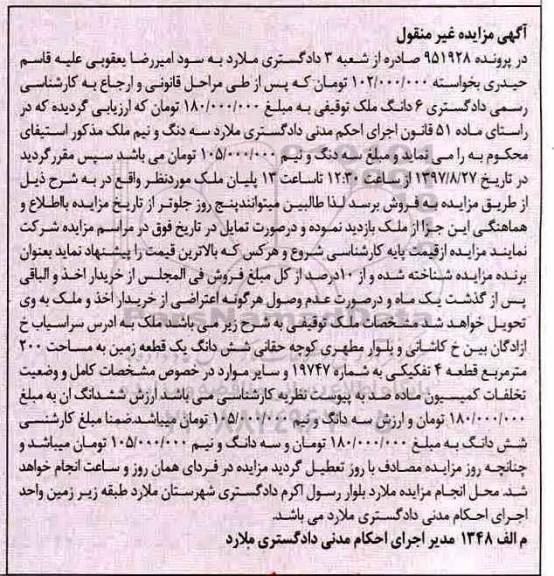 آگهی مزایده غیر منقول
در پرونده ۹۵۱۹۲۸ صادره از شعبه ۳ دادگستری ملارد به سود امیررضا یعقوبی علیه قاسم
حیدری بخواسته ۱۰۲/۰۰۰/۰۰۰ تومان که پس از طی مراحل قانونی و ارجاع به کارشناسی
رسمی دادگستری ۶ دانگ ملک توقیفی به مبلغ ۱۸۰/۰۰۰/۰۰۰ تومان که ارزیابی گردیده که در
راستای ماده ۵۱ قانون اجرای احکم مدنی دادگستری ملارد سه دنگ و نیم ملک مذکور استیفای
محکوم به را می نماید و مبلغ سه دنگ و نیم ۱۰۵/۰۰۰/۰۰۰ تومان می باشد سپس مقرر گردید
در تاریخ ۱۳۹۷/۸/۲۷ از ساعت ۱۲:۳۰ تاساعت ۱۳ پلیان ملک موردنظر واقع در به شرح ذیل
از طریق مزایده به فروش برسد لذا طالبین میتوانندپنج روز جلوتر از تاریخ مزایده بااطلاع و
هماهنگی این جزا از ملک بازدید نموده و درصورت تمایل در تاریخ فوق در مراسم مزایده شرکت
نمایند مزایده ازقیمت پایه کارشناسی شروع و هرکس که بالاترین قیمت را پیشنهاد نماید بعنوان
برنده مزایده شناخته شده و از ۱۰درصد از کل مبلغ فروش فی المجلس از خریدار اخذ و الباقی
پس از گذشت یک ماه و درصورت عدم وصول هرگونه اعتراضی از خریدار اخذ و ملک به وی
تحویل خواهد شد مشخصات ملک توقیفی به شرح زیر می باشد ملک به ادرس سراسیاب خ
ازادگان بین خ کاشانی و بلوار مطهری کوچه حقانی شش دانگ یک قطعه زمین به مساحت ۲۰۰
مترمربع قطعه ۴ تفکیکی به شماره ۱۹۷۴۷ و سایر موارد در خصوص مشخصات کامل و وضعیت
تخلفات کمیسیون ماده صد به پیوست نظریه کارشناسی می باشد ارزش ششدانگ ان به مبلغ
۱۸۰/۰۰۰/۰۰۰ تومان و ارزش سه دانگ و نیم ۱۰۵/۰۰۰/۰۰۰ تومان میباشد.ضمنا مبلغ کارشنسی
شش دانگ به مبلغ ۱۸۰/۰۰۰/۰۰۰ تومان و سه دانگ و نیم ۱۰۵/۰۰۰/۰۰۰ تومان میباشد و
چنانچه روز مزایده مصادف با روز تعطیل گردید مزایده در فردای همان روز و ساعت انجام خواهد
شد. محل انجام مزایده ملارد بلوار رسول اکرم دادگستری شهرستان ملارد طبقه زیر زمین واحد
اجرای احکام مدنی دادگستری ملارد می باشد.
م الف ۱۳۴۸ مدیر اجرای احکام مدنی دادگستری ملارد